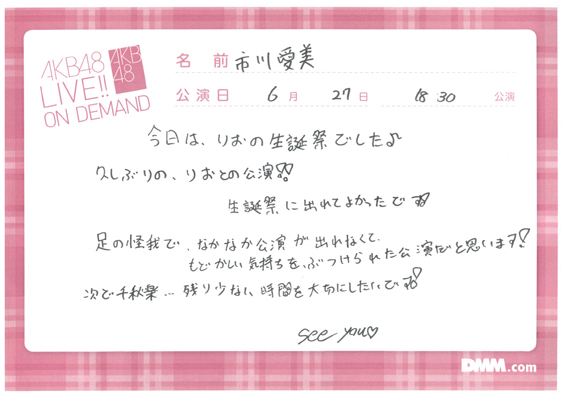 AKB48
LIVE!!
ON DEMAND
AKB
48
名 前 市川愛美
公演日 6月 27日 18 30 公演
今日は、りおの生誕祭でした♪
久しぶりの、りおとの公演!!
生誕祭に出れてよかったです
足の怪我で、なかなか公演が出れなくて、
もどかしい気持ちを、ぶつけられた公演だと思います!
次で千秋楽…残り少ない時間を大切にしたいです!
see you♡
DMM.com